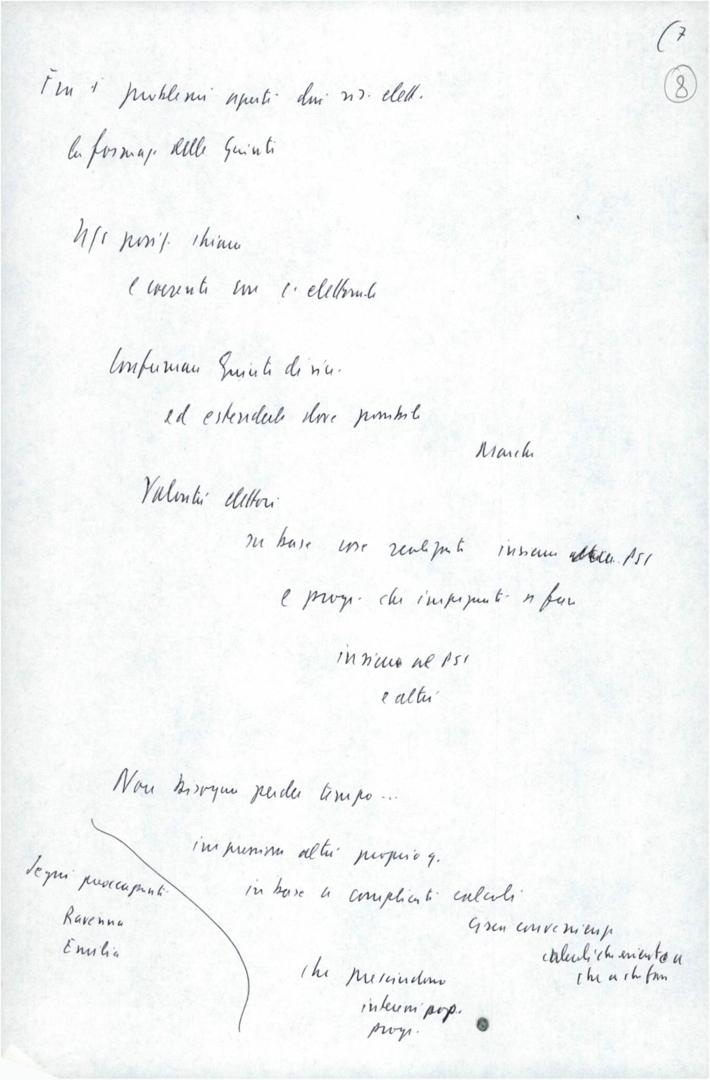 (7
8
Fra i problemi aperti dai ris. elett.
la formaz. delle Giunti
Ns posiz. chiara
e coerente con c. elettorale
Confermare Giunte di sin.
ed estenderle dove possibile
Marche
Volontà elettori
su base cose realizzate insieme PSI
e progr. che impegnati a fare
insieme al PSI
e altri
Non bisogna perder tempo...
impressione altri
in base a complicati calcoli
convenienza
calcoli che
che
che prescindono
interessi pop.
progr.
Segni preoccupanti
Ravenna
Emilia